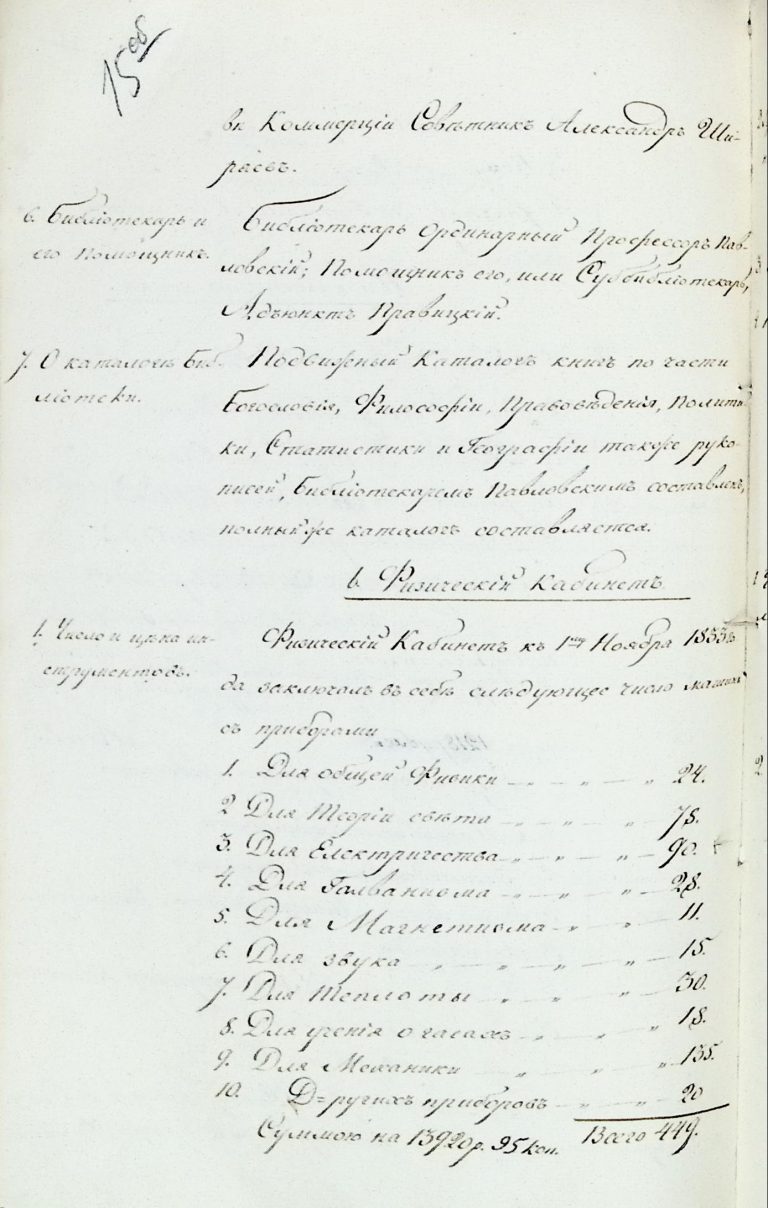 15 об
вѣ Коммерціи Совѣтникъ Александръ Ши-
ряевъ.
6. Библіотекарь и
его Помощникъ.
Библіотекарь Ординарный Профессоръ Пав-
ловскій; Помощникъ его, или Суббибліотекарь,
Адъюнктъ Правицкій.
7. О каталогѣ Биб-
ліотеки.
Подвижный Каталогъ книгъ по части
Богословія, Философіи, Правовѣденія, Полити-
ки, Статистики и Географіи также руко-
писей, Библіотекаремъ Павловскимъ составленъ,
полный же каталогъ составляется.
b. Физическій Кабинетъ
1. Число и цѣна ин-
струментовъ.
Физическій Кабинетъ къ 1му Ноября 1833 го-
да заключалъ въ себѣ слѣдующее число машинъ
съ приборами
1. Для общей Физики 24.
2 Для Теоріи свѣта 78.
3. Для Електричества 90.
4. Для Галванизма 28.
5. Для Магнетизма 11.
6. Для звука 15.
7. Для Теплоты 30.
8. Для ученія о газахъ 18.
9. Для Механики 135.
10. Д=ругихъ приборовъ 20
Суммою на 13920 р. 95 коп. Всего 449.